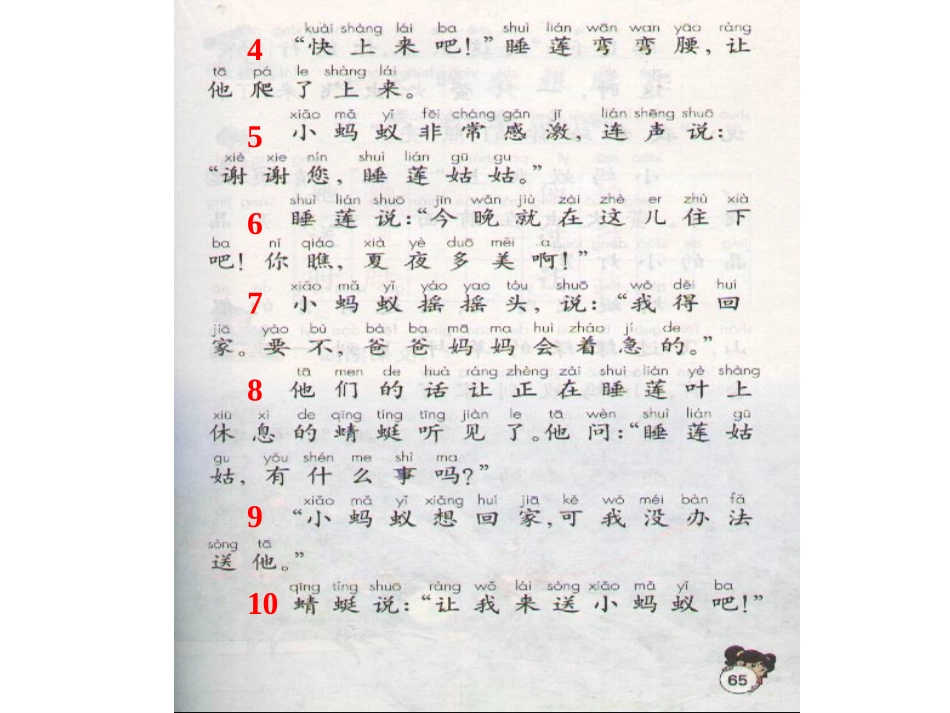 kuài shàng lái ba shuì lián wān wan yāo ràng
4 “快上来吧！”睡莲弯弯腰，让
tā pá le shàng lái
他爬了上来。
xiǎo mǎ yǐ fēi cháng gǎn jī lián shēng shuō
5 小蚂蚁非常感激，连声说：
xiè xie nín shuì lián gū gu
“谢谢您，睡莲姑姑。”
shuì lián shuō jīn wǎn jiù zài zhè er zhù xià
6 睡莲说：“今晚就在这儿住下
ba nǐ qiáo xià yè duō měi a
吧！你瞧，夏夜多美啊！”
xiǎo mǎ yǐ yáo yao tóu shuō wǒ děi huí
7 小蚂蚁摇摇头，说：“我得回
jiā yào bù bà ba mā ma huì zháo jí de
家。要不，爸爸妈妈会着急的。”
tā men de huà ràng zhèng zài shuì lián yè shàng
8 他们的话让正在睡莲叶上
xiū xi de qīng tíng tīng jiàn le tā wèn shuì lián gū
休息的蜻蜓听见了。他问：“睡莲姑
gu yǒu shén me shì ma
姑，有什么事吗？”
xiǎo mǎ yǐ xiǎng huí jiā kě wǒ méi bàn fǎ
9 “小蚂蚁想回家，可我没办法
sòng tā
送他。”
qīng tíng shuō ràng wǒ lái sòng xiǎo mǎ yǐ ba
10 蜻蜓说：“让我来送小蚂蚁吧！”
65